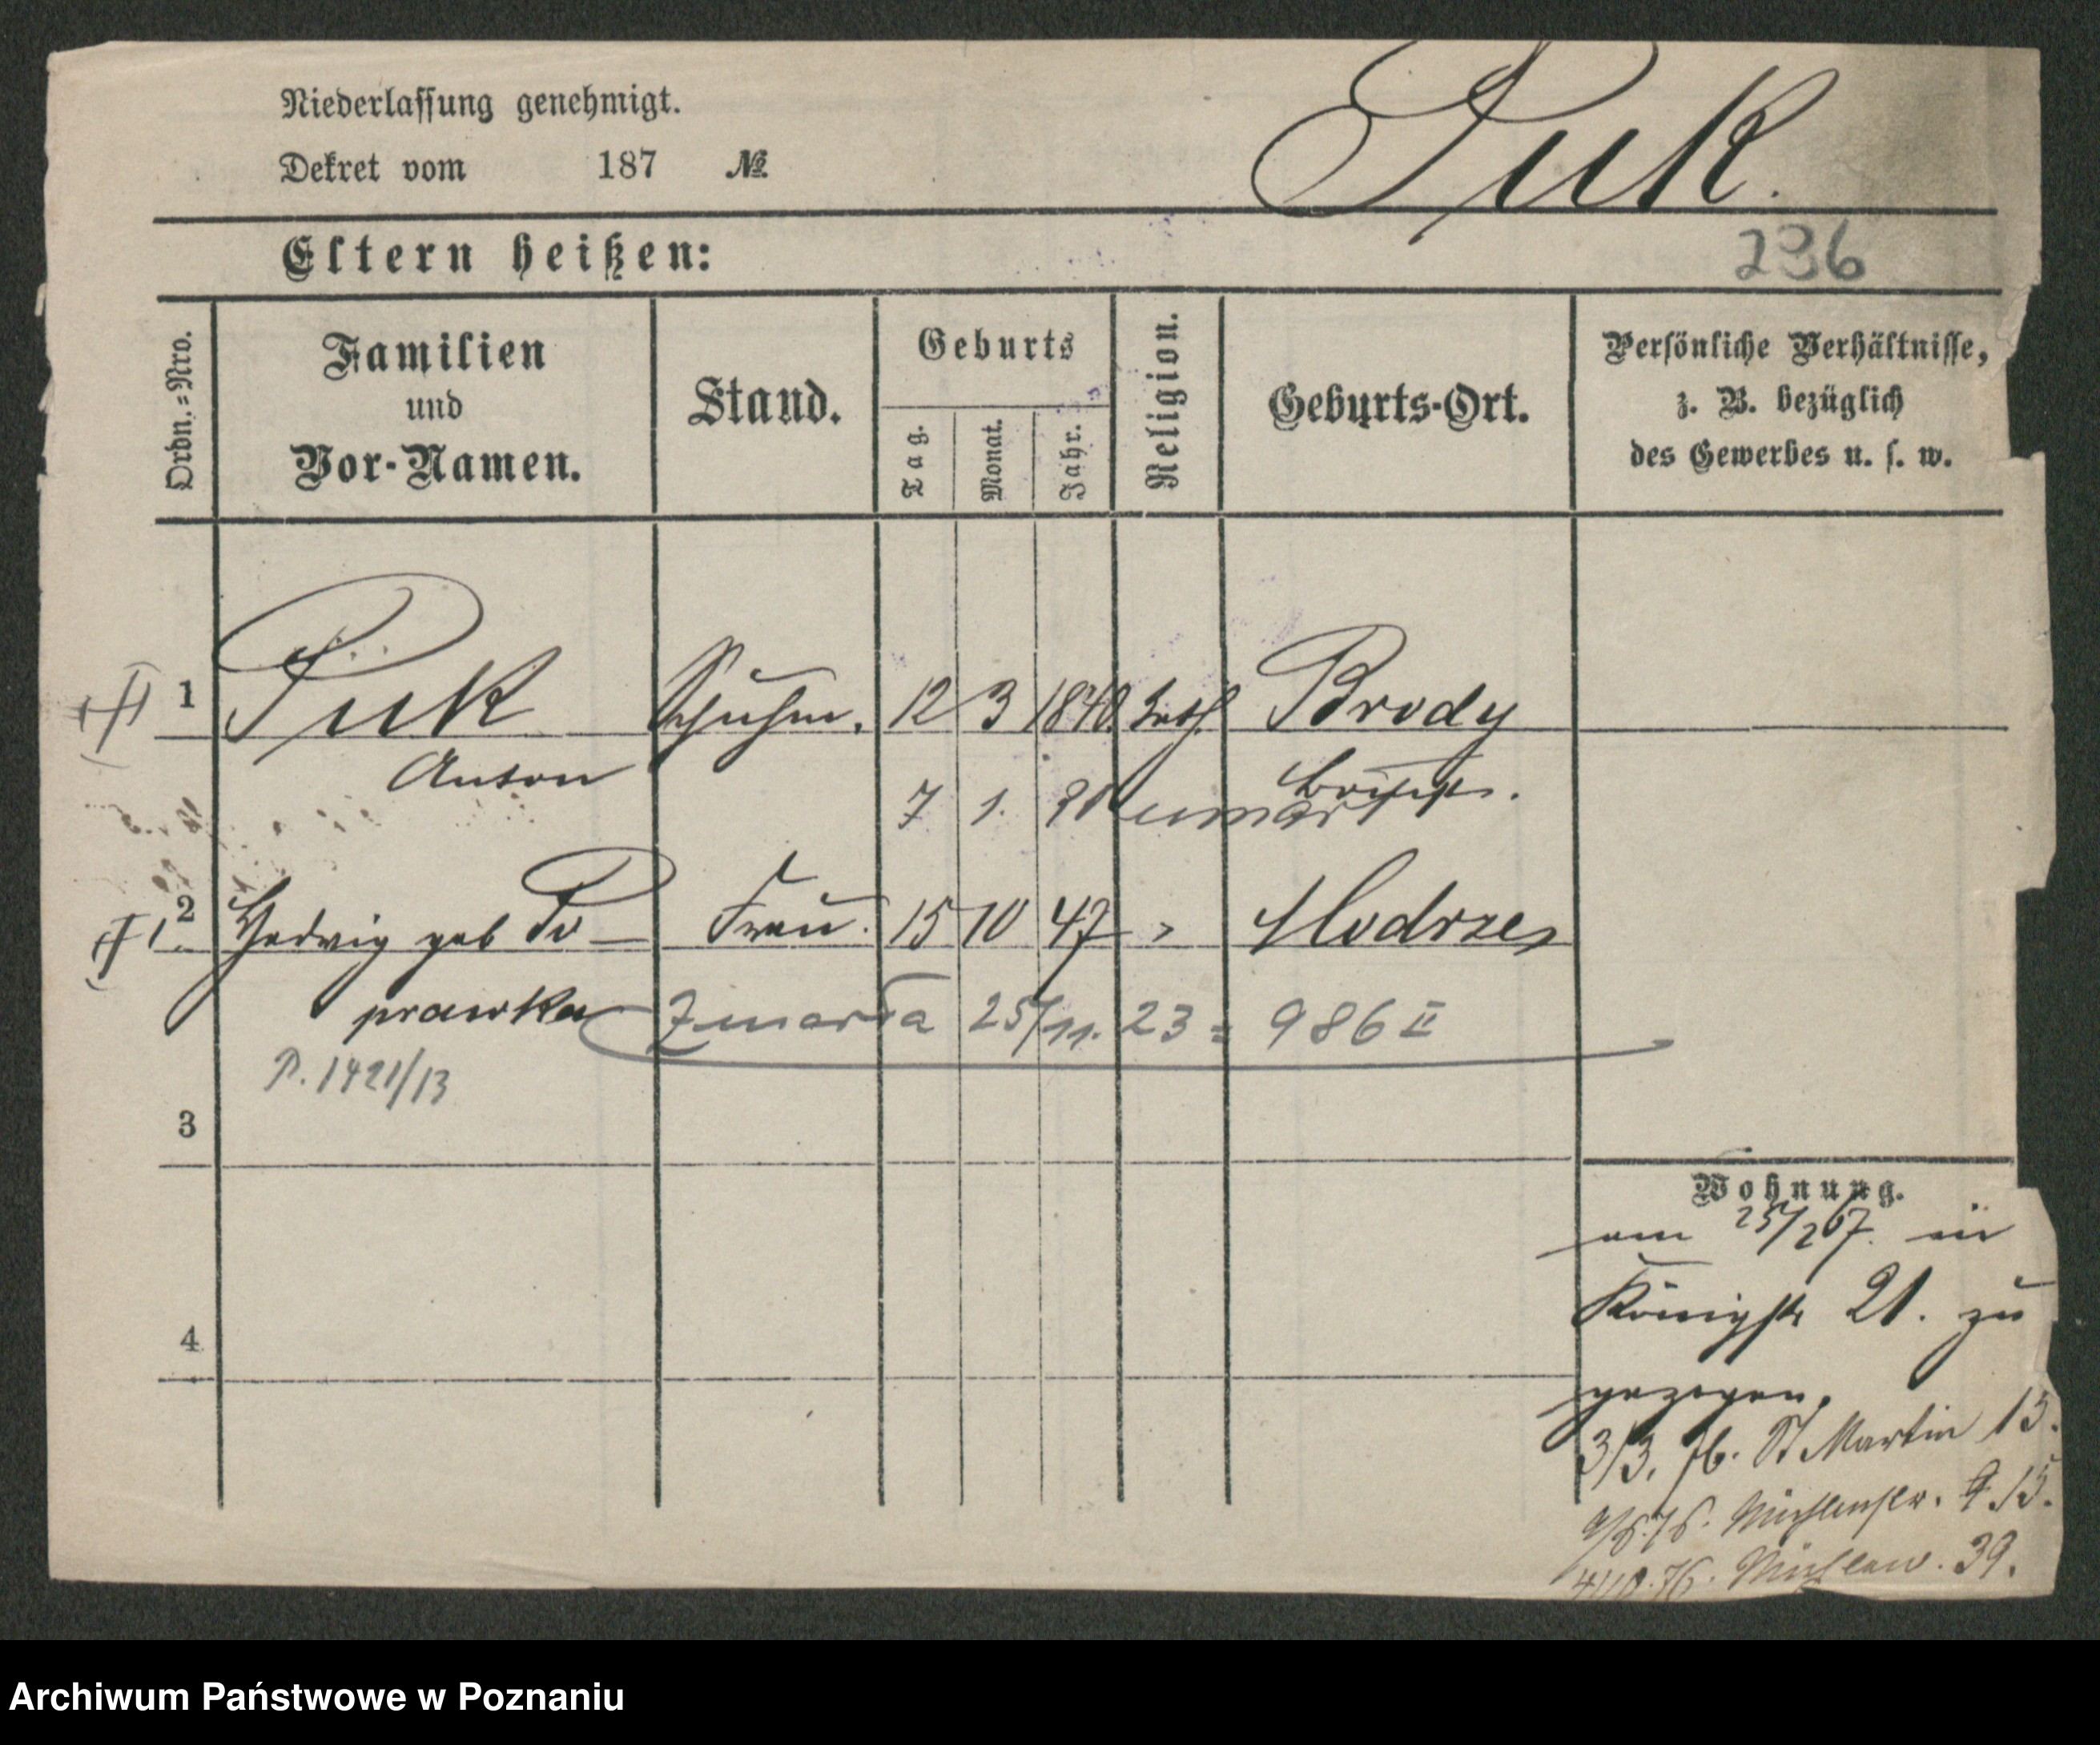 Niederlassung genehmigt.
Dekret vom 187 №
Puk.
Eltern heißen:
236
Ordn.=Nro.
Familien
und
Vor-Namen.
Stand.
Geburts
Tag.
Monat.
Jahr.
Religion.
Geburts-Ort.
Persönliche Verhältnisse,
z. B. bezüglich
des Gewerbes u. s. w.
1 Puk Schuhm. 12 3 1840. kath. Brody
Anton
7 1. umarł
2 Hedwig geb Po- Frau. 15 10 47 " Modrze
prawka Zmarła 25/11. 23 = 986 II
P. 1421/13
3
4
Wohnung.
am 25/2 67. in
Königstr 21. zu
gezogen.
3/3. 76. St Martin 13.
Mühlenstr. 15.
4/10.76. 39.
Archiwum Państwowe w Poznaniu